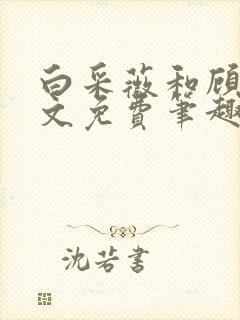 白采薇和顾
文免费笔趣
沈若書